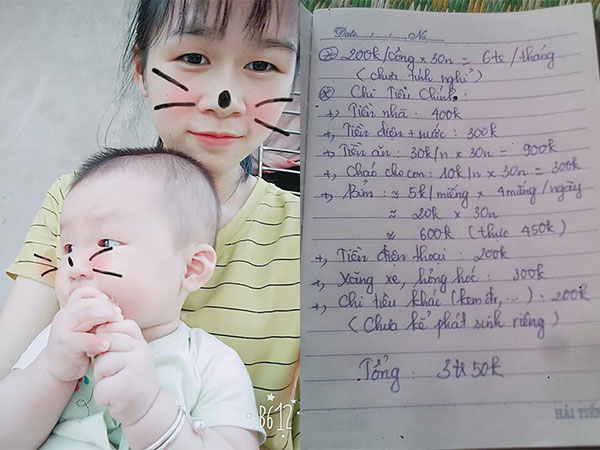 B612
Date / / No
⊛ 200k/công x 30n = 6tr/tháng
(chưa tính nghỉ)
⊛ Chi Tiền Chính:
+, Tiền nhà : 400k
+, Tiền điện + nước : 300k
+, Tiền ăn : 30k/n x 30n = 900k
+, Cháo cho con : 10k/n x 30n = 300k
+, Bỉm : ≈ 5k/miếng x 4 miếng/ngày
≈ 20k x 30n
≈ 600k (thực 450k)
+, Tiền điện thoại : 200k
+, Xăng xe, hỏng hóc : 300k
+, Chi tiêu khác (kem đr, ...) : 200k
(Chưa kể phát sinh riêng)
Tổng : 3tr 50k
HẢI TIẾN